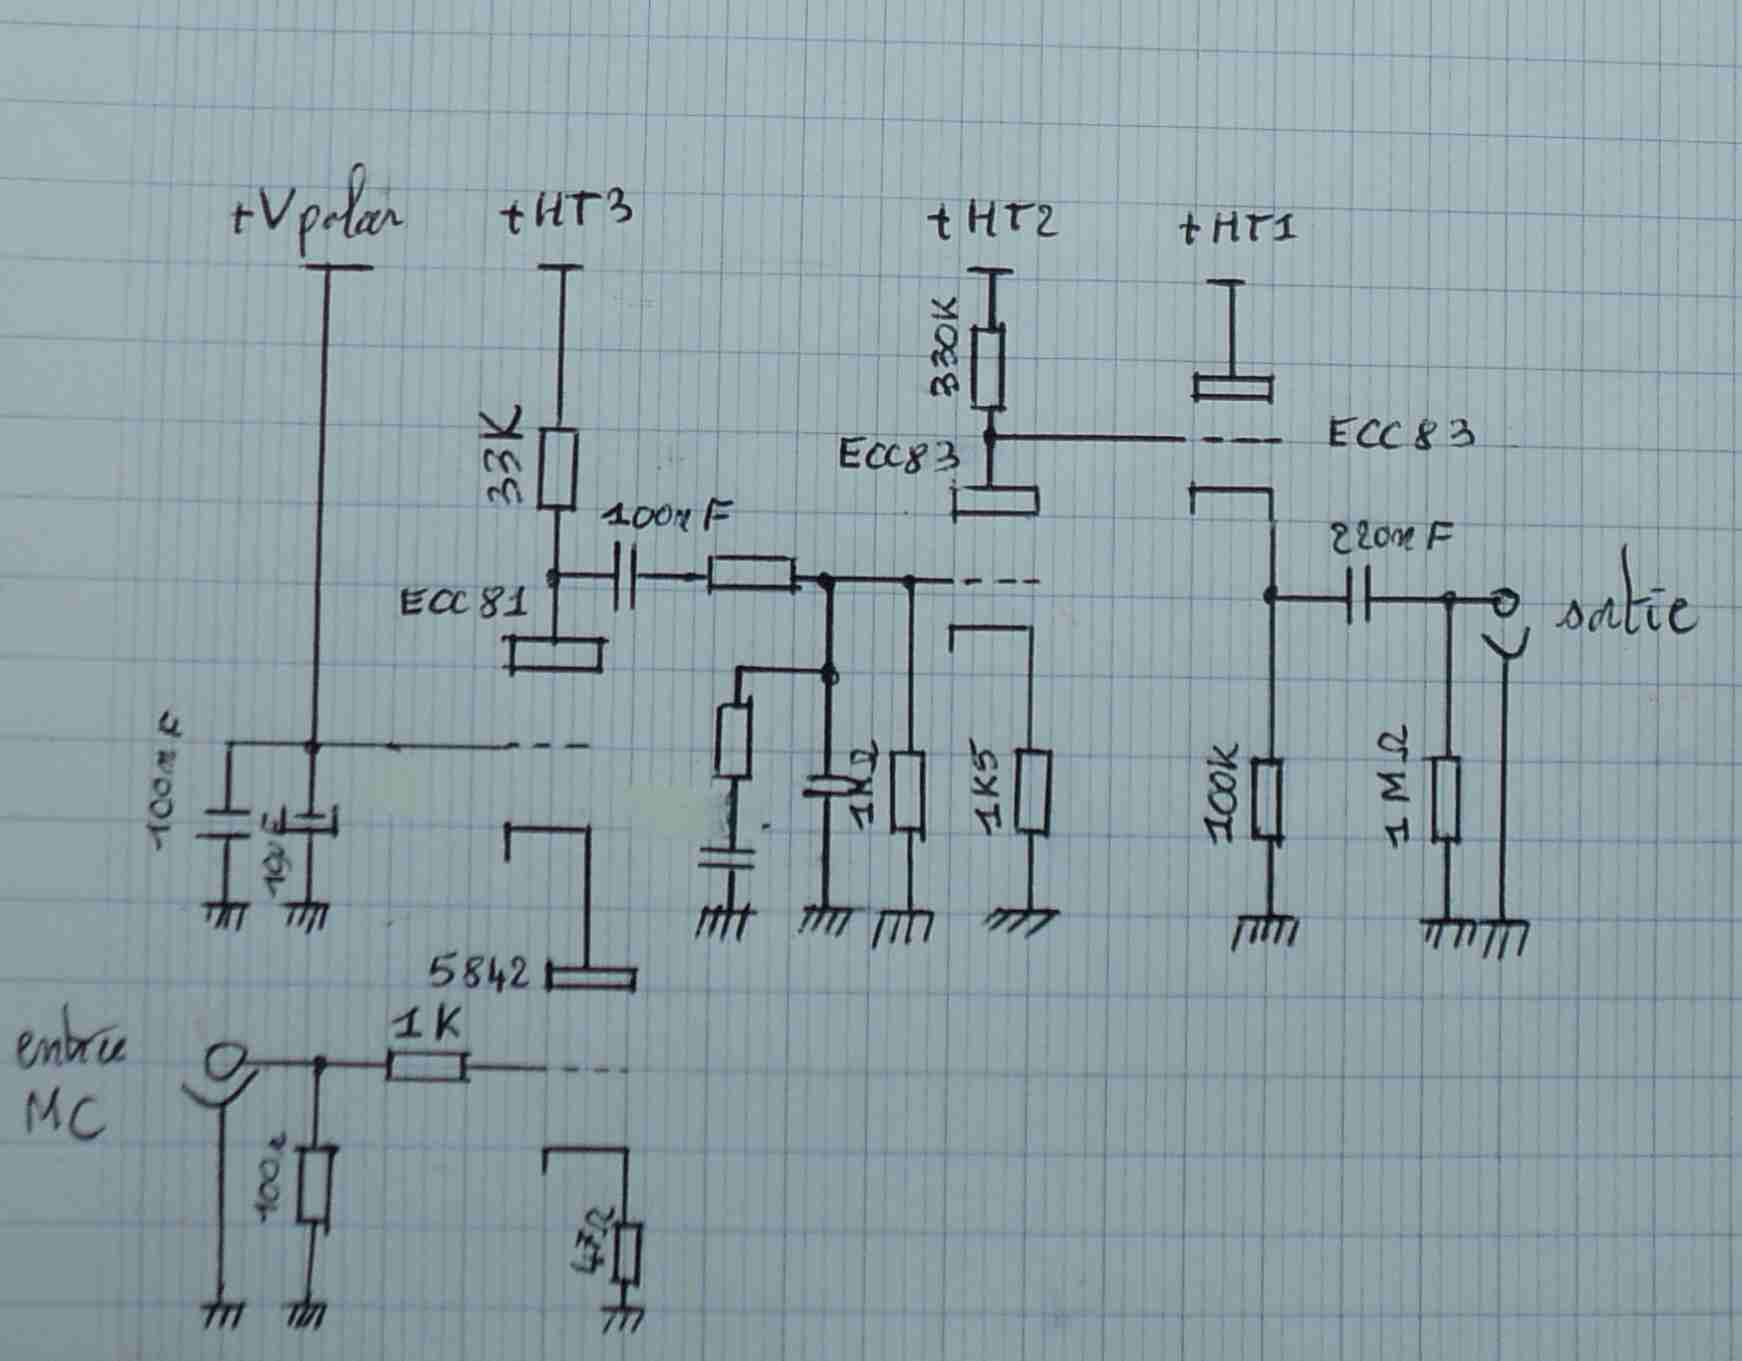 +Vpolar
+HT3
+HT2
+HT1
330K
33K
ECC83
ECC83
100nF
220nF
ECC81
sortie
100nF
10µF
1MΩ
1K5
100K
1MΩ
5842
1K
entrée
MC
100Ω
47Ω